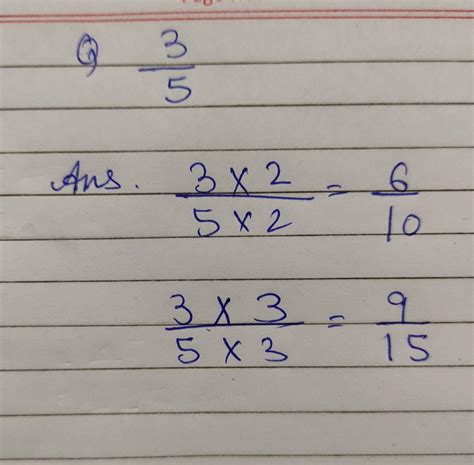 Q 3/5
Ans. 3 x 2 / 5 x 2 = 6/10
3 x 3 / 5 x 3 = 9/15